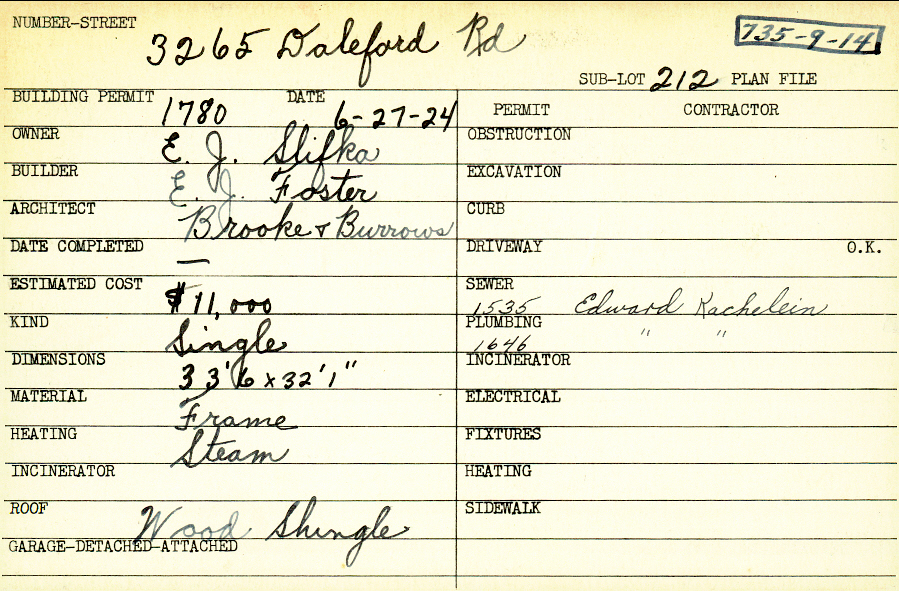 NUMBER-STREET 3265 Daleford Rd 735-9-14
SUB-LOT 212 PLAN FILE
BUILDING PERMIT 1780 DATE 6-27-24 PERMIT CONTRACTOR
OWNER E. J. Slifka OBSTRUCTION
BUILDER E. J. Foster EXCAVATION
ARCHITECT Brooke & Burrows CURB
DATE COMPLETED — DRIVEWAY O.K.
ESTIMATED COST $11,000 SEWER 1535 Edward Kachelein
KIND Single PLUMBING 1646 " "
DIMENSIONS 33'6 x 32'1" INCINERATOR
MATERIAL Frame ELECTRICAL
HEATING Steam FIXTURES
INCINERATOR HEATING
ROOF Wood Shingle SIDEWALK
GARAGE-DETACHED-ATTACHED